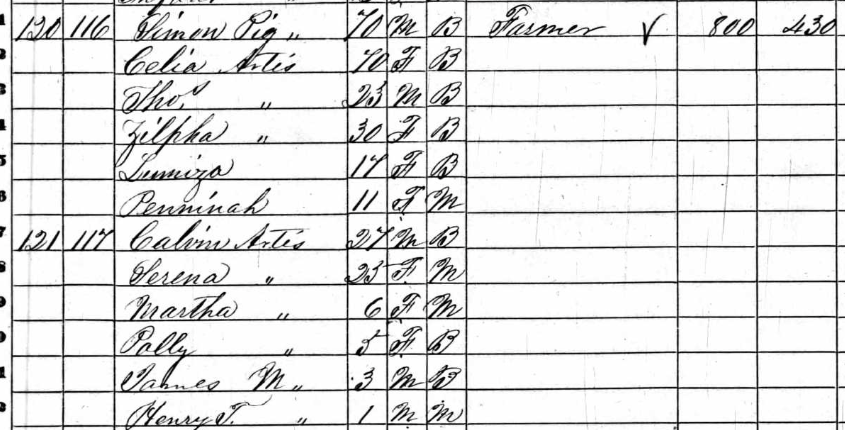 120 116 Simon Pig " 70 M B Farmer √ 800 430
Celia Artis 70 F B
Thos " 23 M B
Zilpha " 30 F B
Lumiza 17 F B
Penninah 11 F M
121 117 Calvin Artis 27 M B
Serena " 23 F M
Martha " 6 F M
Polly " 5 F B
James M " 3 M B
Henry T. " 1 M M